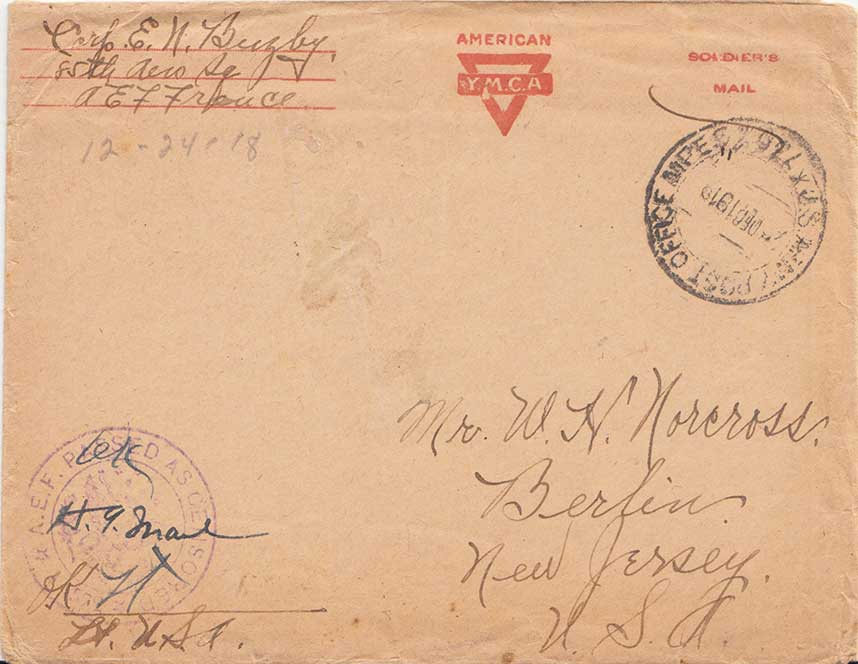 Corp. E. N. Buzby
85th Aero Sq
A E F France
12-24-18
AMERICAN
Y.M.C.A
SOLDIER'S
MAIL
U.S. ARMY POST OFFICE MPES
DEC 1918
Mr. W. N. Norcross.
Berlin
New Jersey.
U. S. A.
A.E.F. PASSED AS CENSORED
OK
Lt. USA.